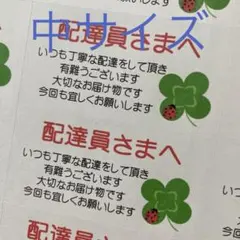 今回も宜しくお願いします
中サイズ
配達員さまへ
いつも丁寧な配達をして頂き
有難うございます
大切なお届け物です
今回も宜しくお願いします
配達員さまへ
いつも丁寧な配達をして頂き
有難うございます
大切なお届け物です
今回も宜しくお願いします
配達員さまへ